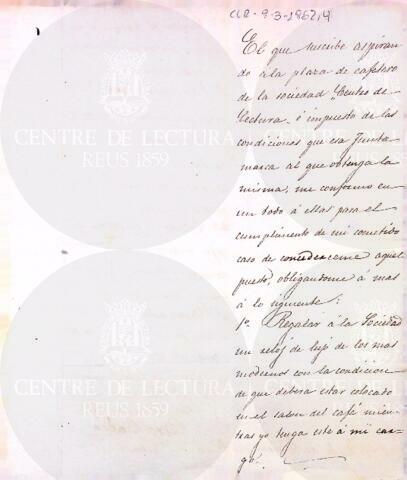 CLR-9-3-1862,4
El que suscribe aspiran
do á la plaza de cafetero
de la sociedad "Centro de
Lectura" é impuesto de las
condiciones que esa Junta
marca al que obtenga la
misma, me conformo en
un todo á ellas para el
cumplimiento de mi cometido
caso de concederseme aquel
puesto, obligandome á mas
á lo siguiente:
1º. Regalar á la Sociedad
un reloj de lujo de los mas
modernos con la condicion
de que deberá estar colocado
en el salon del café mien-
tras yo tenga este á mi car-
go.
CENTRE DE LECTURA
REUS 1859
CENTRE DE LECTURA
REUS 1859